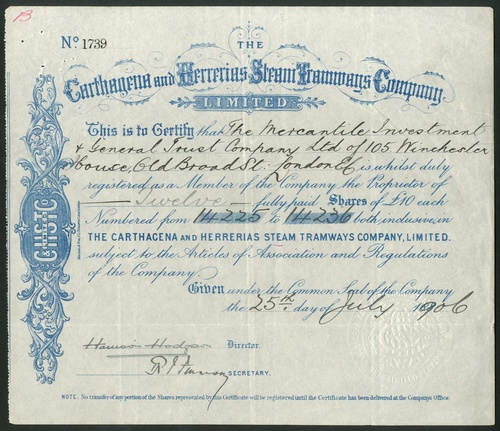 B
Nº 1739
THE
Carthagena and Herrerias Steam Tramways Company
LIMITED.
This is to Certify that The Mercantile Investment
& General Trust Company Ltd of 105 Winchester
House, Old Broad St. London EC is whilst duly
registered as a Member of the Company the Proprietor of
Twelve fully paid Shares of £10 each
Numbered from 14225 to 14236 both inclusive, in
THE CARTHAGENA AND HERRERIAS STEAM TRAMWAYS COMPANY, LIMITED.
subject to the Articles of Association and Regulations
of the Company.
Given under the Common Seal of the Company
the 25th day of July 1906
Director.
SECRETARY.
NOTE. No transfer of any portion of the Shares represented by this Certificate will be registered until the Certificate has been delivered at the Companys Office.